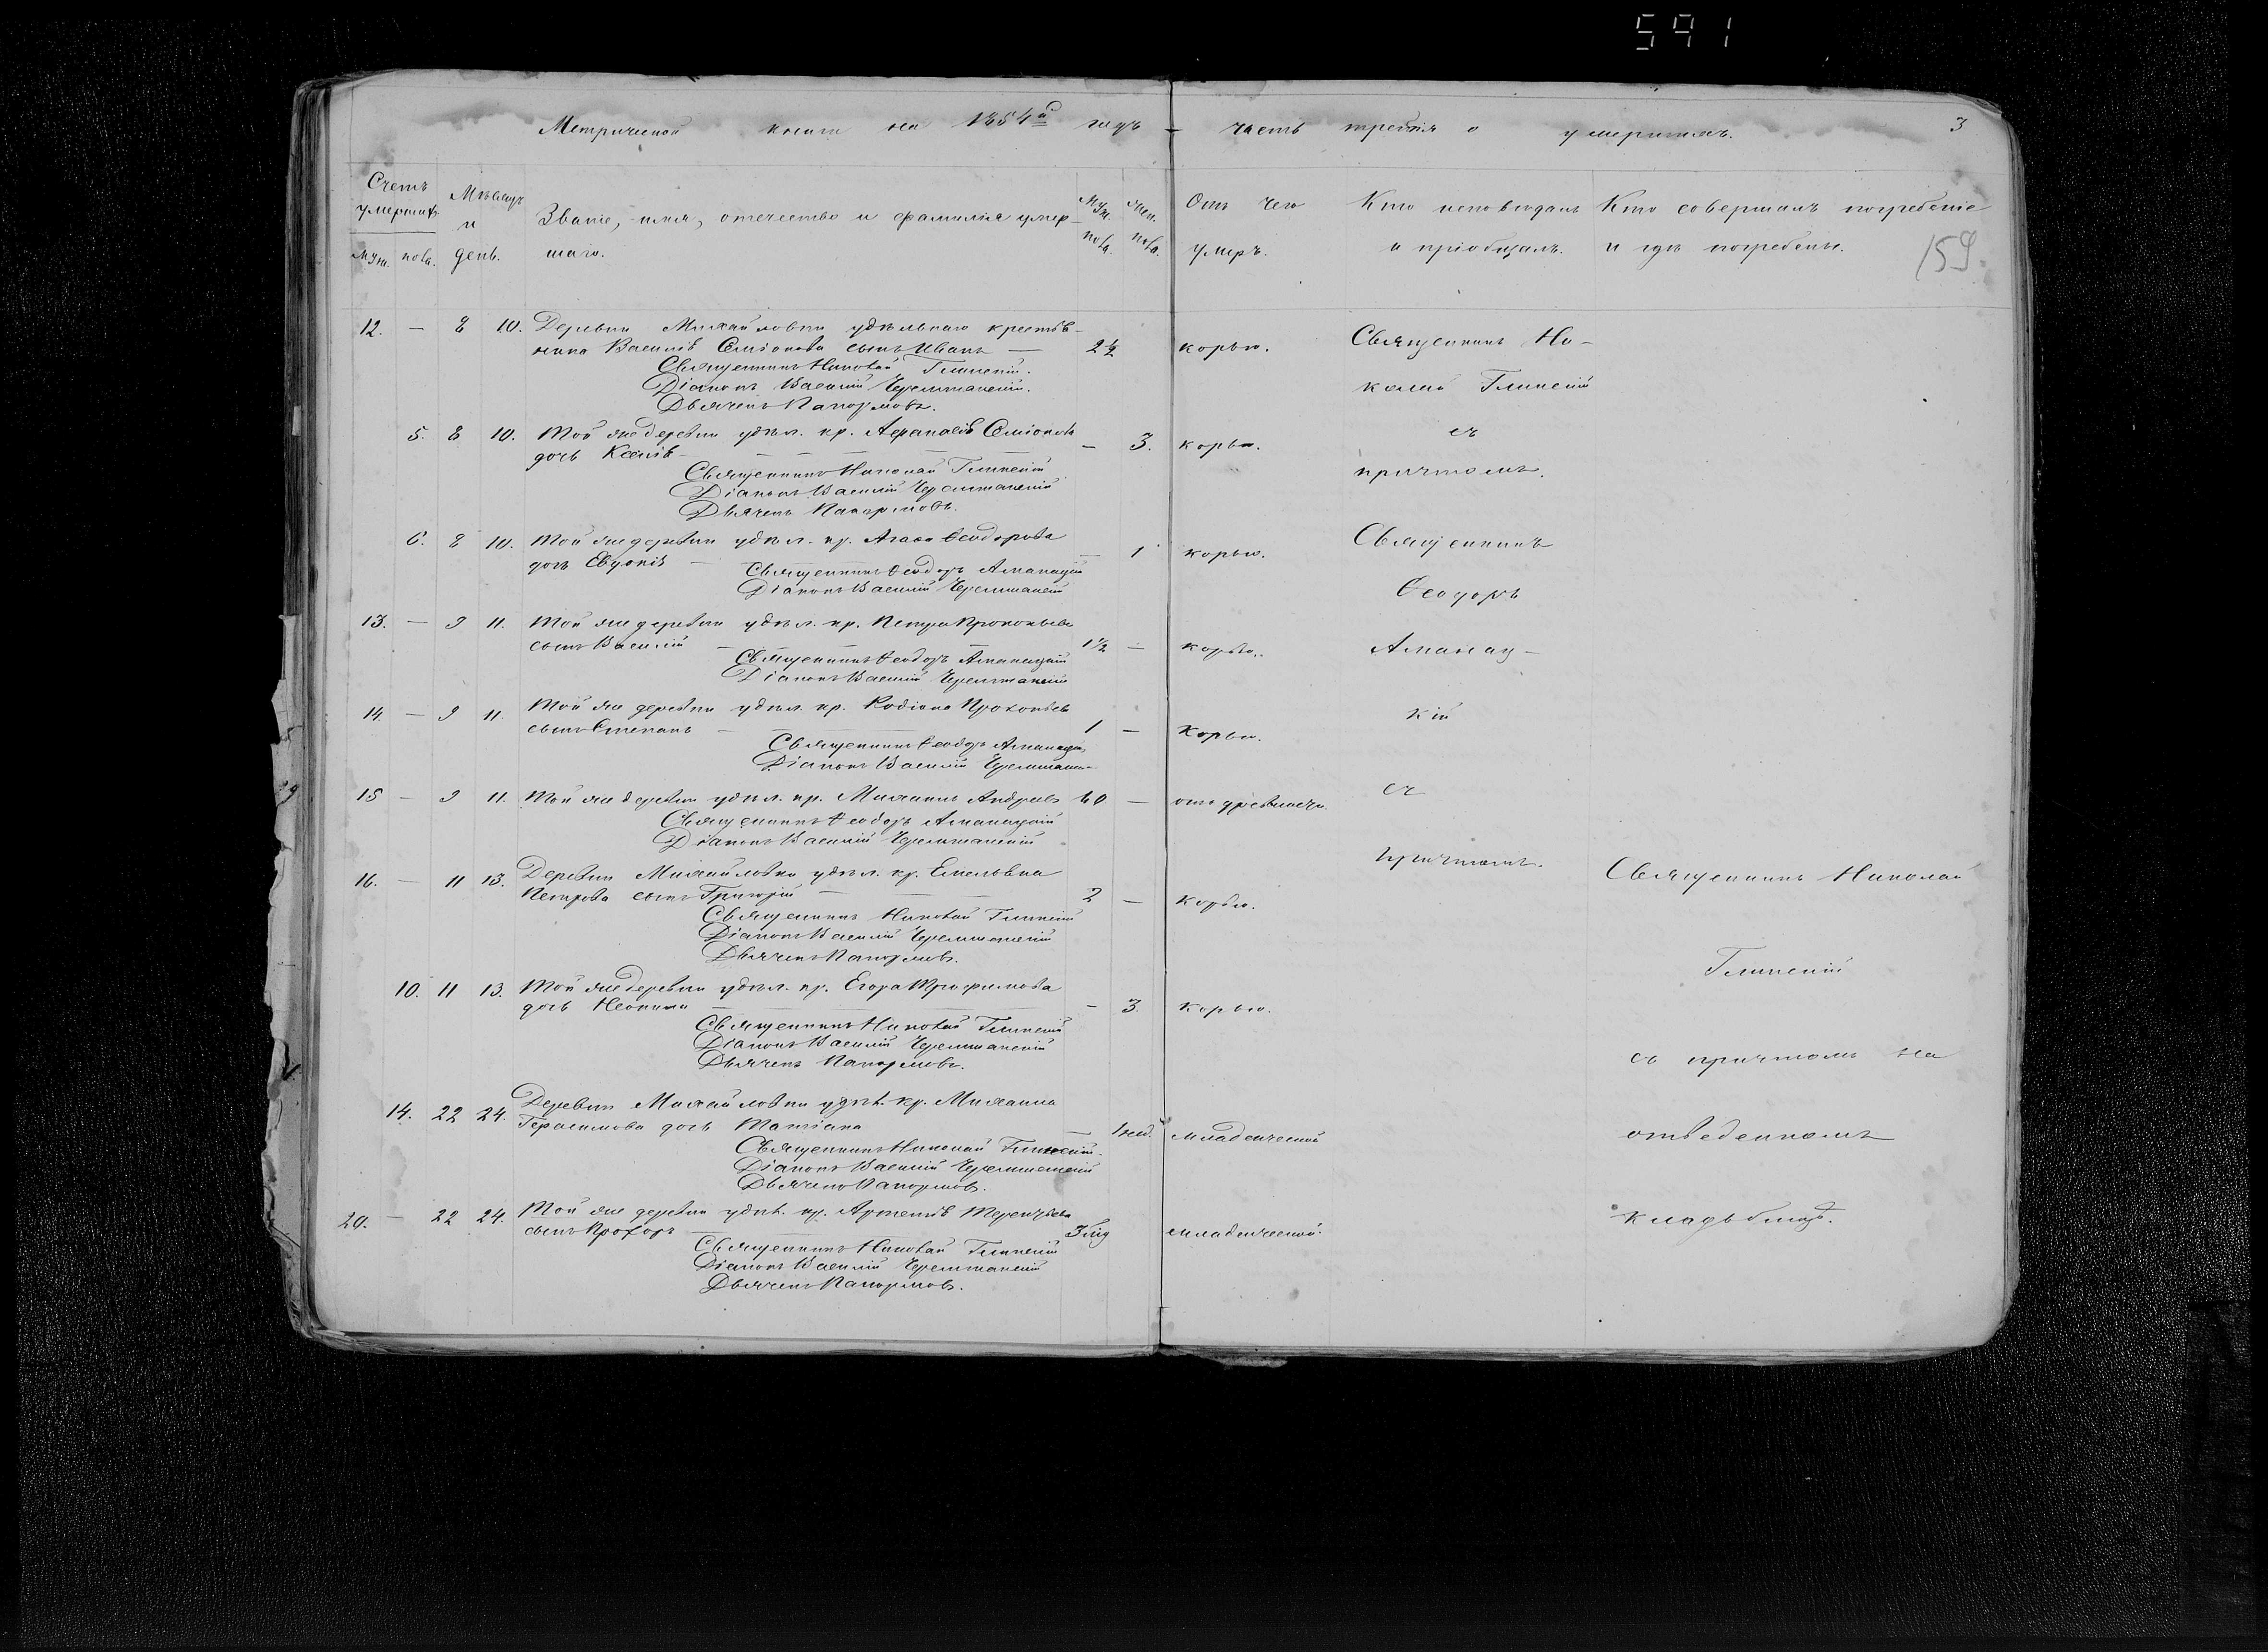 591
Метрической книги на 1854й годъ часть третья о умершихъ. 3
Счетъ умершихъ.
муж. пола.
Мѣсяцъ и день.
Званіе, имя, отечество и фамилія умер-
шаго.
Муж. пола.
Жен. пола.
Отъ чего
умеръ.
Кто исповѣдалъ
и пріобщалъ.
Кто совершалъ погребеніе
и гдѣ погребены.
159.
12. — 8 10. Деревни Михайловки удѣльнаго крестья-
нина Василія Семіонова сынъ Иванъ — 2½ корью.
Священникъ Николай Глинскій.
Діаконъ Василій Черемшанскій.
Дьячекъ Панормовъ.
5. 8 10. Той же деревни удѣл. кр. Афанасія Семіонова
дочь Ксенія — — 3. корью.
Священникъ Николай Глинскій
Діаконъ Василій Черемшанскій
Дьячекъ Панормовъ.
6. 8 10. Той же деревни удѣл. кр. Ѳеодорова
дочь Евдокія — — 1 корью.
Священникъ Ѳеодоръ Алманацкій
Діаконъ Василій Черемшанскій
13. — 9 11. Той же деревни удѣл. кр. Петра Прокопьева
сынъ Василій — 1½ — корью.
Священникъ Ѳеодоръ Алманацкій
Діаконъ Василій Черемшанскій
14. — 9 11. Той же деревни удѣл. кр. Родіона Прокопьева
сынъ Степанъ — 1 — корью.
Священникъ Ѳеодоръ Алманацкій
Діаконъ Василій Черемшан-
15 — 9 11. Той же деревни удѣл. кр. Михаилъ Андреевъ 60 —
Священникъ Ѳеодоръ Алманацкій
Діаконъ Василій Черемшанскій
16. — 11 13. Деревни Михайловки удѣл. кр. Емельяна
Петрова сынъ Григорій — 2 — корью.
Священникъ Николай Глинскій
Діаконъ Василій Черемшанскій
Дьячекъ Панормовъ.
10. 11 13. Той же деревни удѣл. кр. Егора Трофимова
дочь Неонила — — 3. корью.
Священникъ Николай Глинскій
Діаконъ Василій Черемшанскій
Дьячекъ Панормовъ.
14. 22 24. Деревни Михайловки удѣл. кр. Михаила
Герасимова дочь Татіана — 1 нед. младенческой
Священникъ Николай Глинскій.
Діаконъ Василій Черемшанскій
Дьячекъ Панормовъ.
20. — 22 24. Той же деревни удѣл. кр. Артемія Терентьева
сынъ Прохоръ — младенческой.
Священникъ Николай Глинскій
Діаконъ Василій Черемшанскій
Дьячекъ Панормовъ.
Священникъ Ни-
колай Глинскій
съ
причтомъ.
Священникъ
Ѳеодоръ
Алманац-
кій
съ
причтомъ.
Священникъ Николай
Глинскій
съ причтомъ на
отведенномъ
кладьбищѣ.